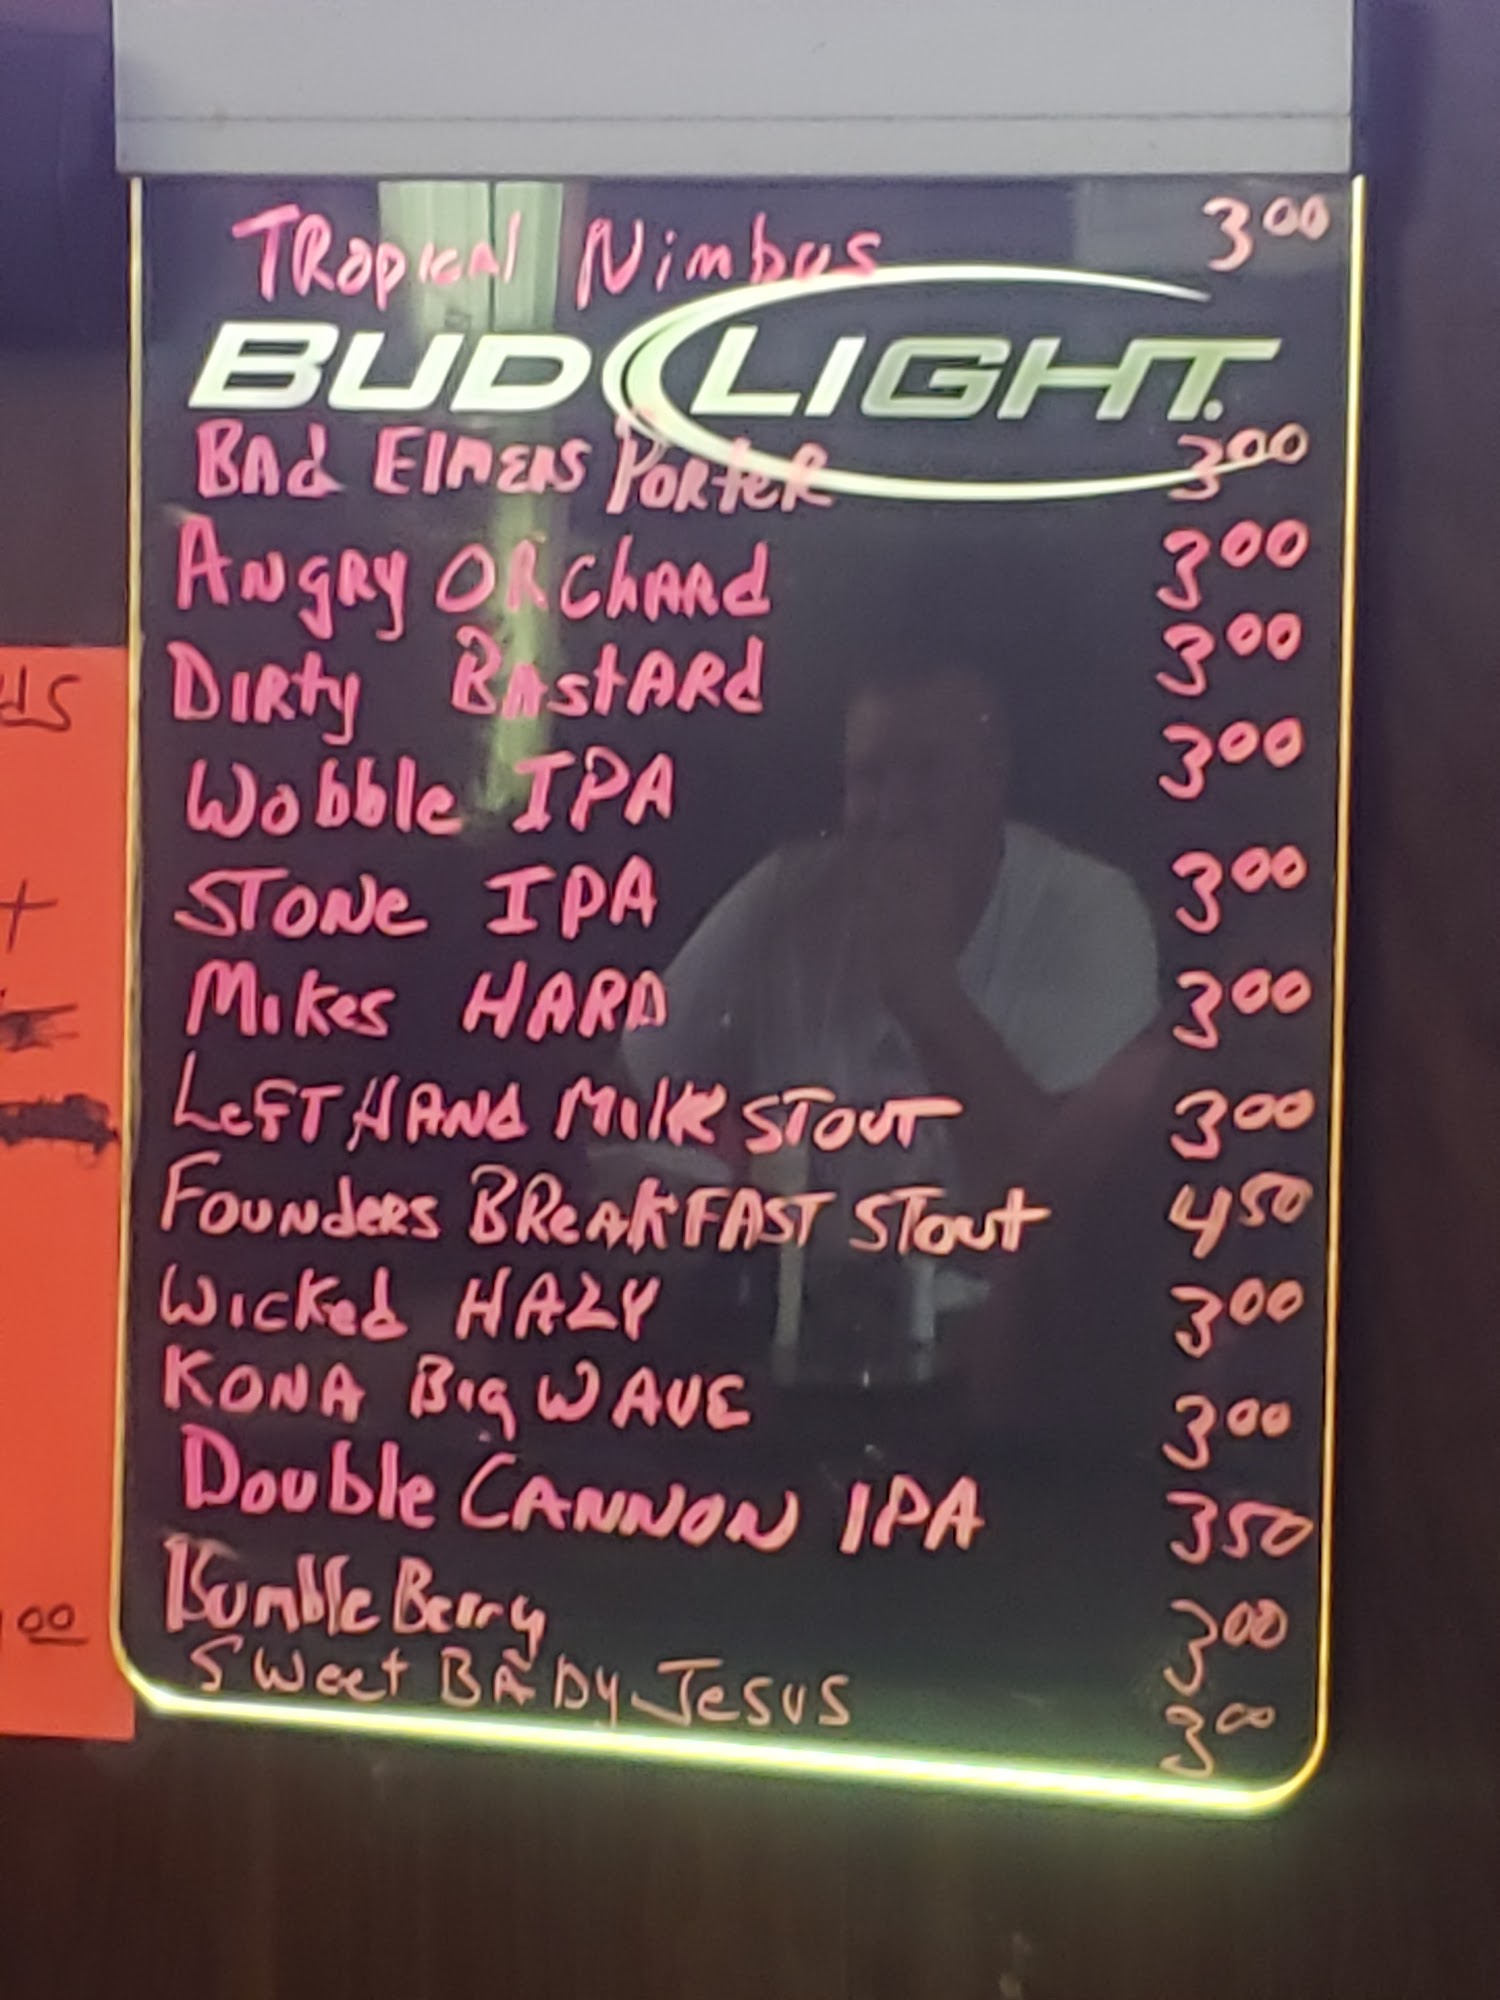 Tropical Nimbus 3 00
BUD LIGHT.
Bad Elmers Porter 3 00
Angry Orchard 3 00
Dirty Bastard 3 00
Wobble IPA 3 00
Stone IPA 3 00
Mikes HARD 3 00
Left Hand Milk Stout 3 00
Founders Breakfast Stout 4 50
Wicked HAZY 3 00
KONA Big WAVE 3 00
Double CANNON IPA 3 50
Bumble Berry 3 00
Sweet BABy Jesus 3 00
00